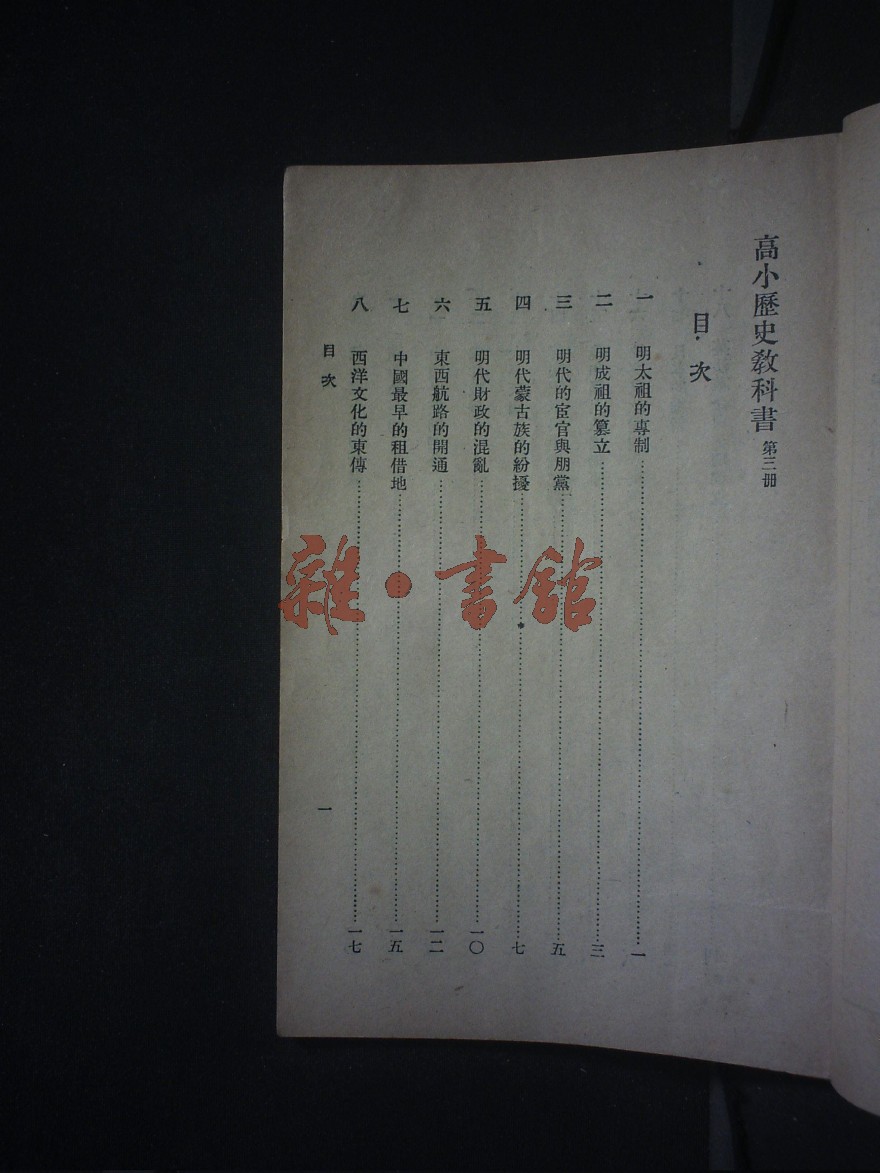 高小歷史敎科書 第三册
目次
一 明太祖的專制 一
二 明成祖的簒立 三
三 明代的宦官與朋黨 五
四 明代蒙古族的紛擾 七
五 明代財政的混亂 一〇
六 東西航路的開通 一二
七 中國最早的租借地 一五
八 西洋文化的東傳 一七
目次 一
雜·書館